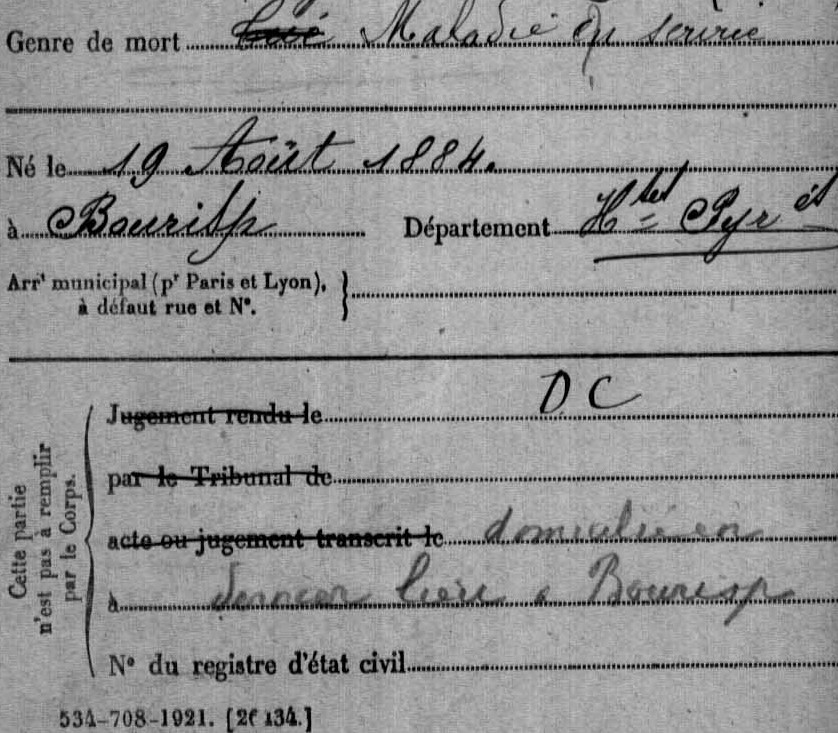 Genre de mort Tué Maladie en service
Né le 19 Août 1884.
à Bourisp Département Htes Pyr ées
Arrt municipal (pr Paris et Lyon), }
à défaut rue et N°.
Cette partie
n'est pas à remplir
par le Corps.
Jugement rendu le D C
par le Tribunal de
acte ou jugement transcrit le domicilié en
à dernier lieu à Bourisp
N° du registre d'état civil
534-708-1921. [26134.]